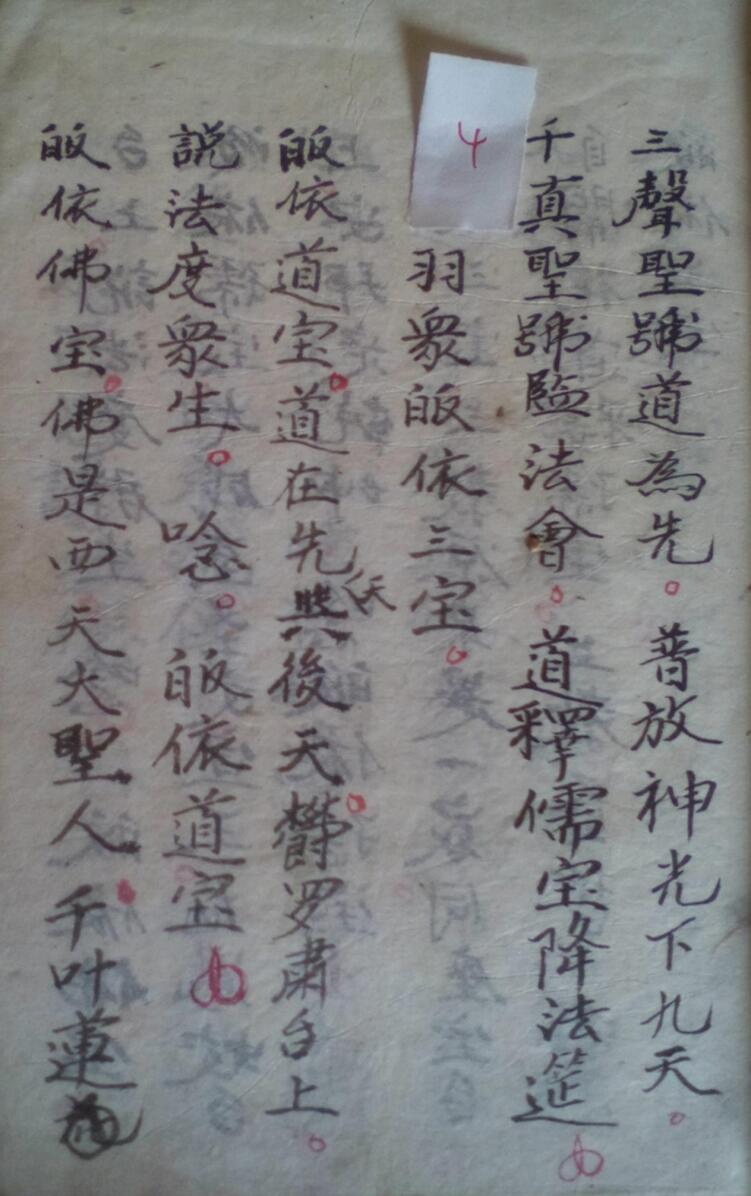 三聲聖號道為先。普放神光下九天。
千真聖號監法會。道釋儒宝降法筵
4
羽衆皈依三宝。
皈依道宝。道在先天與後天。欝罗肅台上。
説法度衆生。唸。皈依道宝
皈依佛宝。佛是西天大聖人。千叶蓮